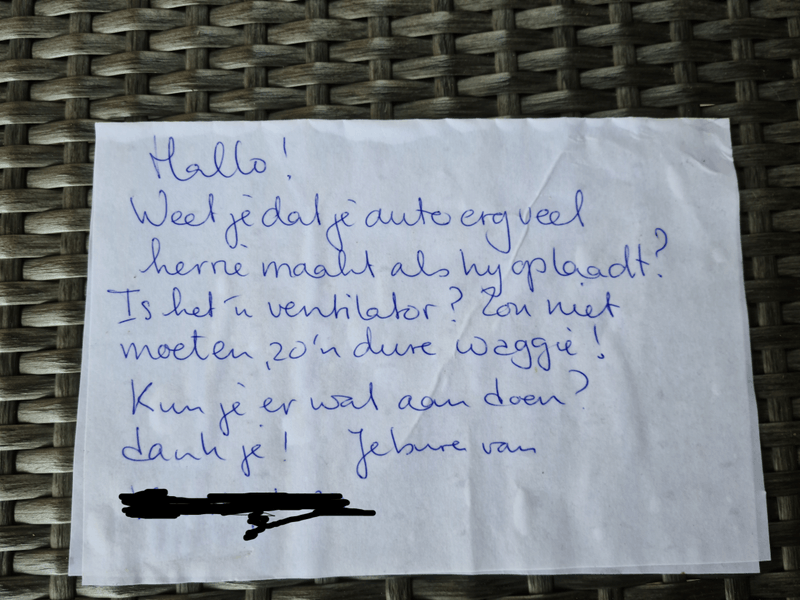 Hallo!
Weet je dat je auto erg veel
herrie maakt als hij oplaadt?
Is het 'n ventilator? Zou niet
moeten, zo'n dure waggie!
Kun je er wat aan doen?
dank je! Je bure van